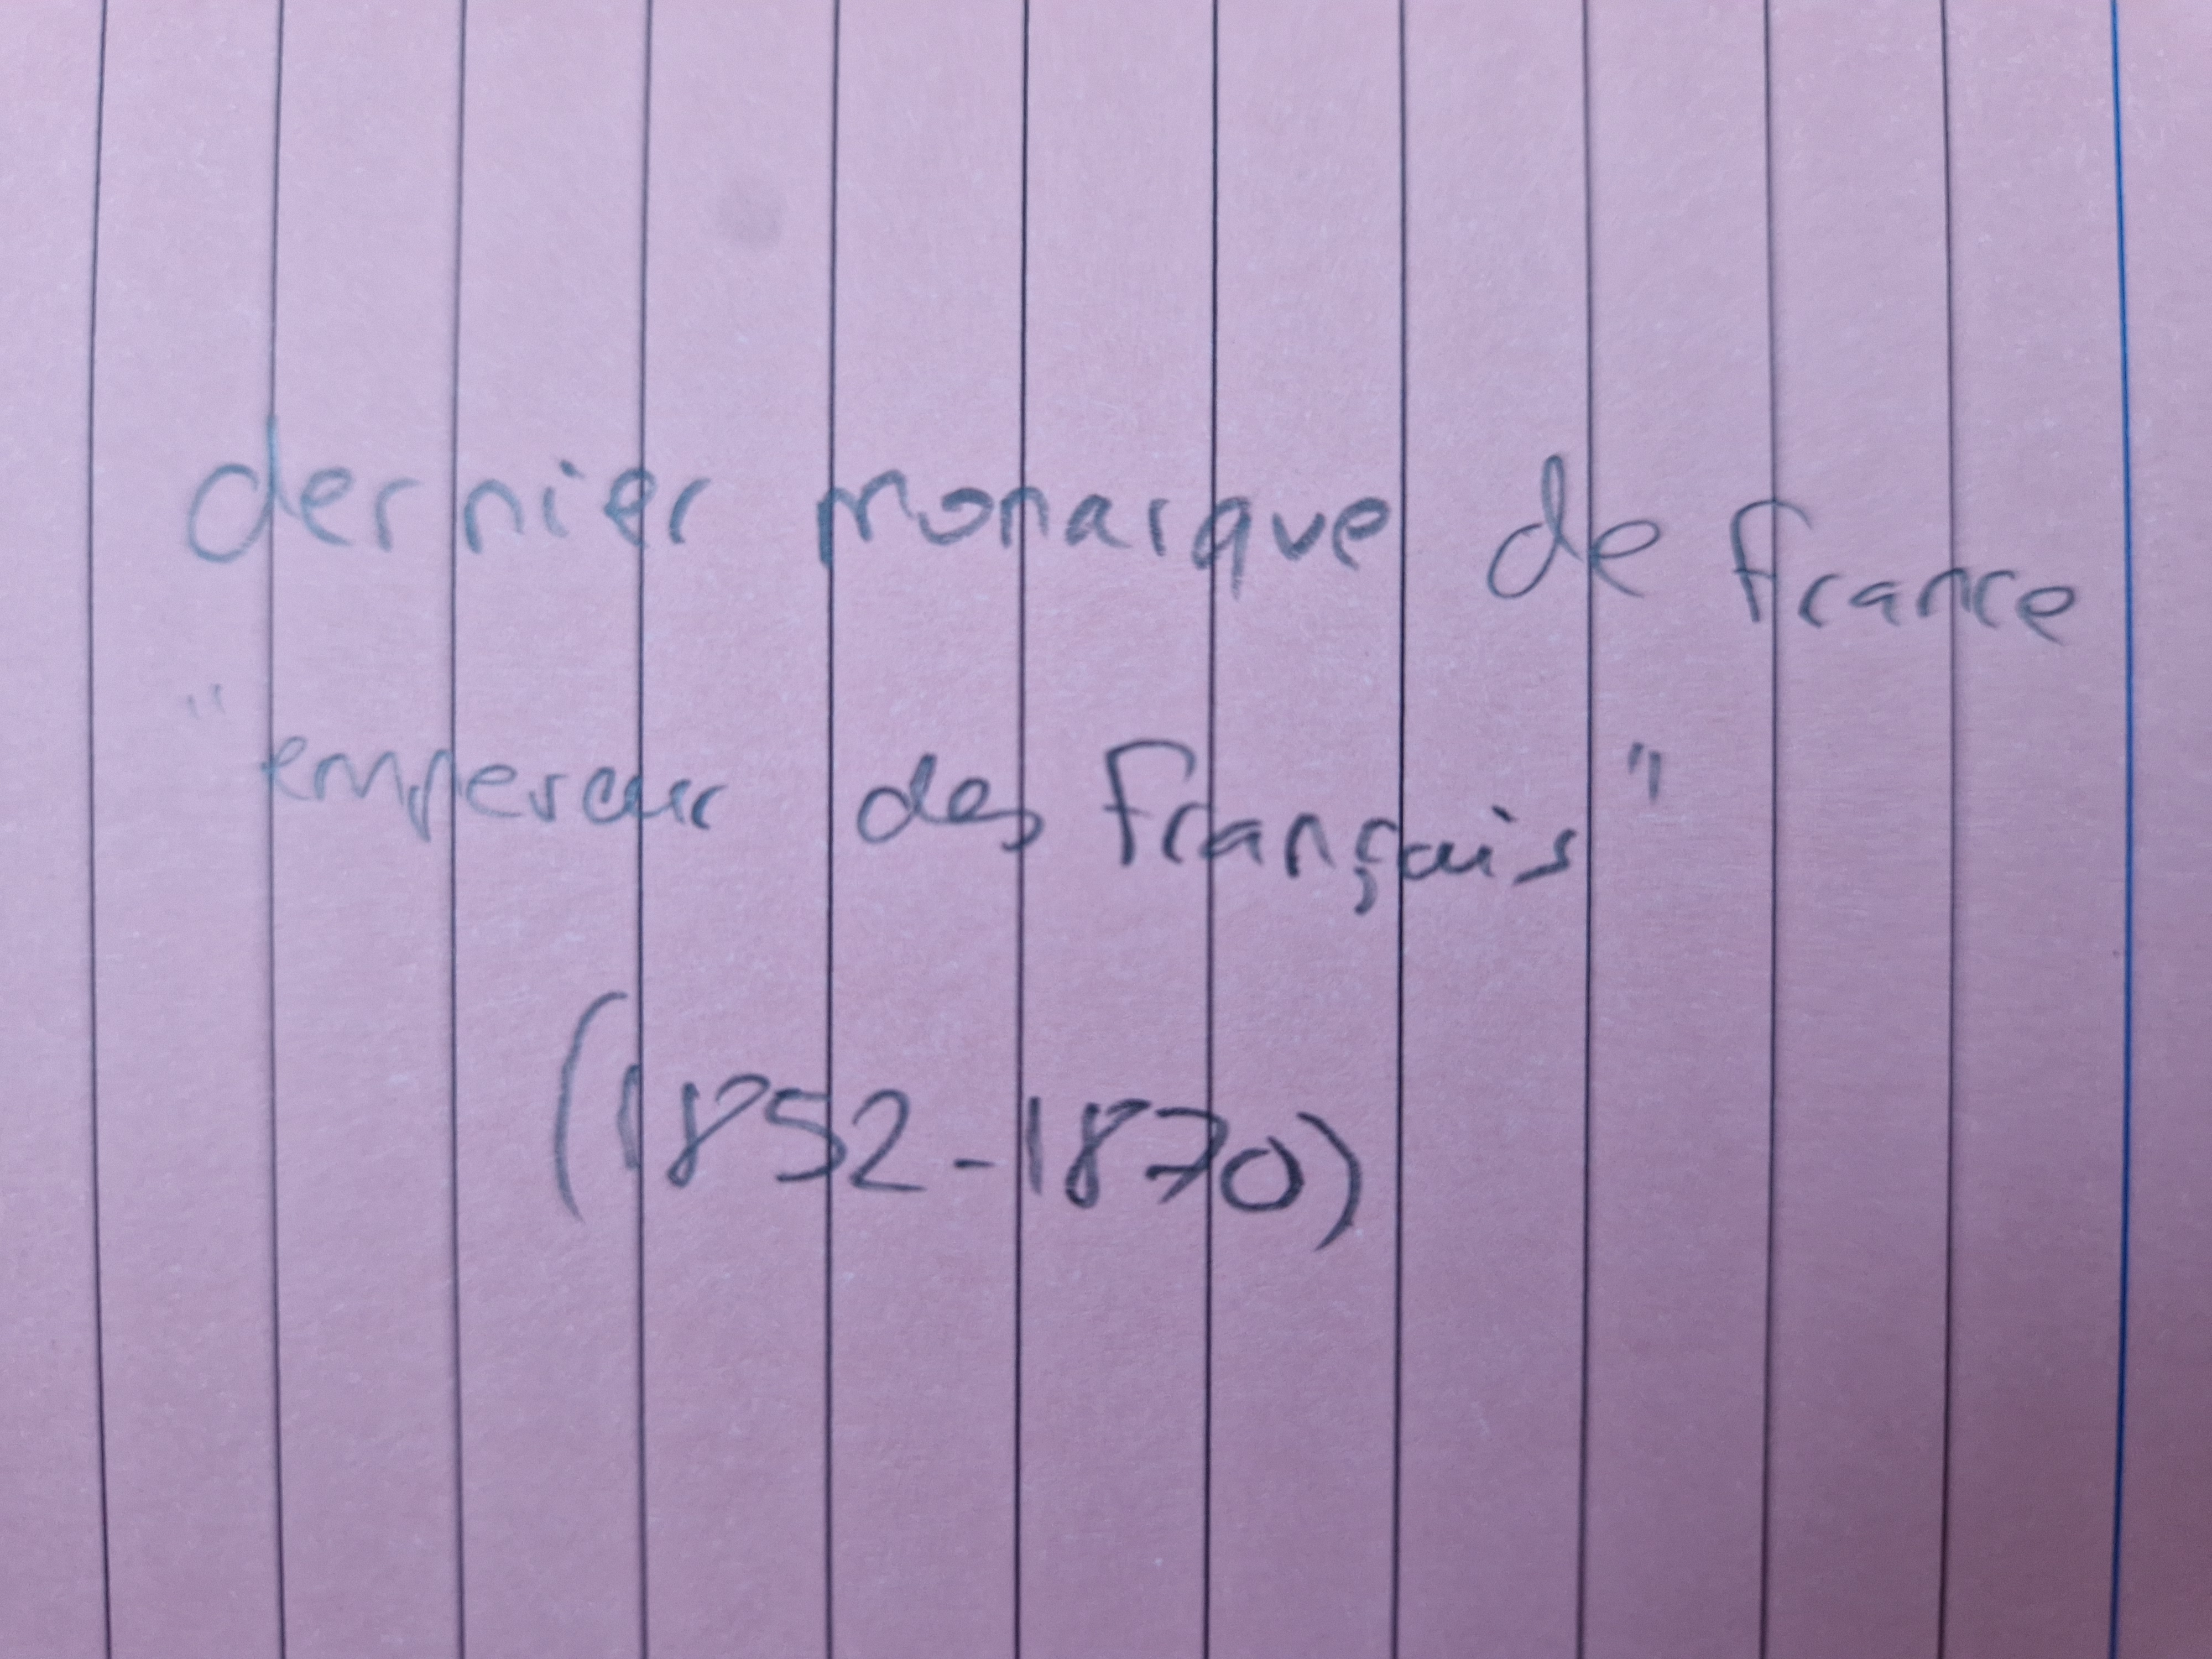 dernier monarque de France
"empereur des Français"
(1852-1870)